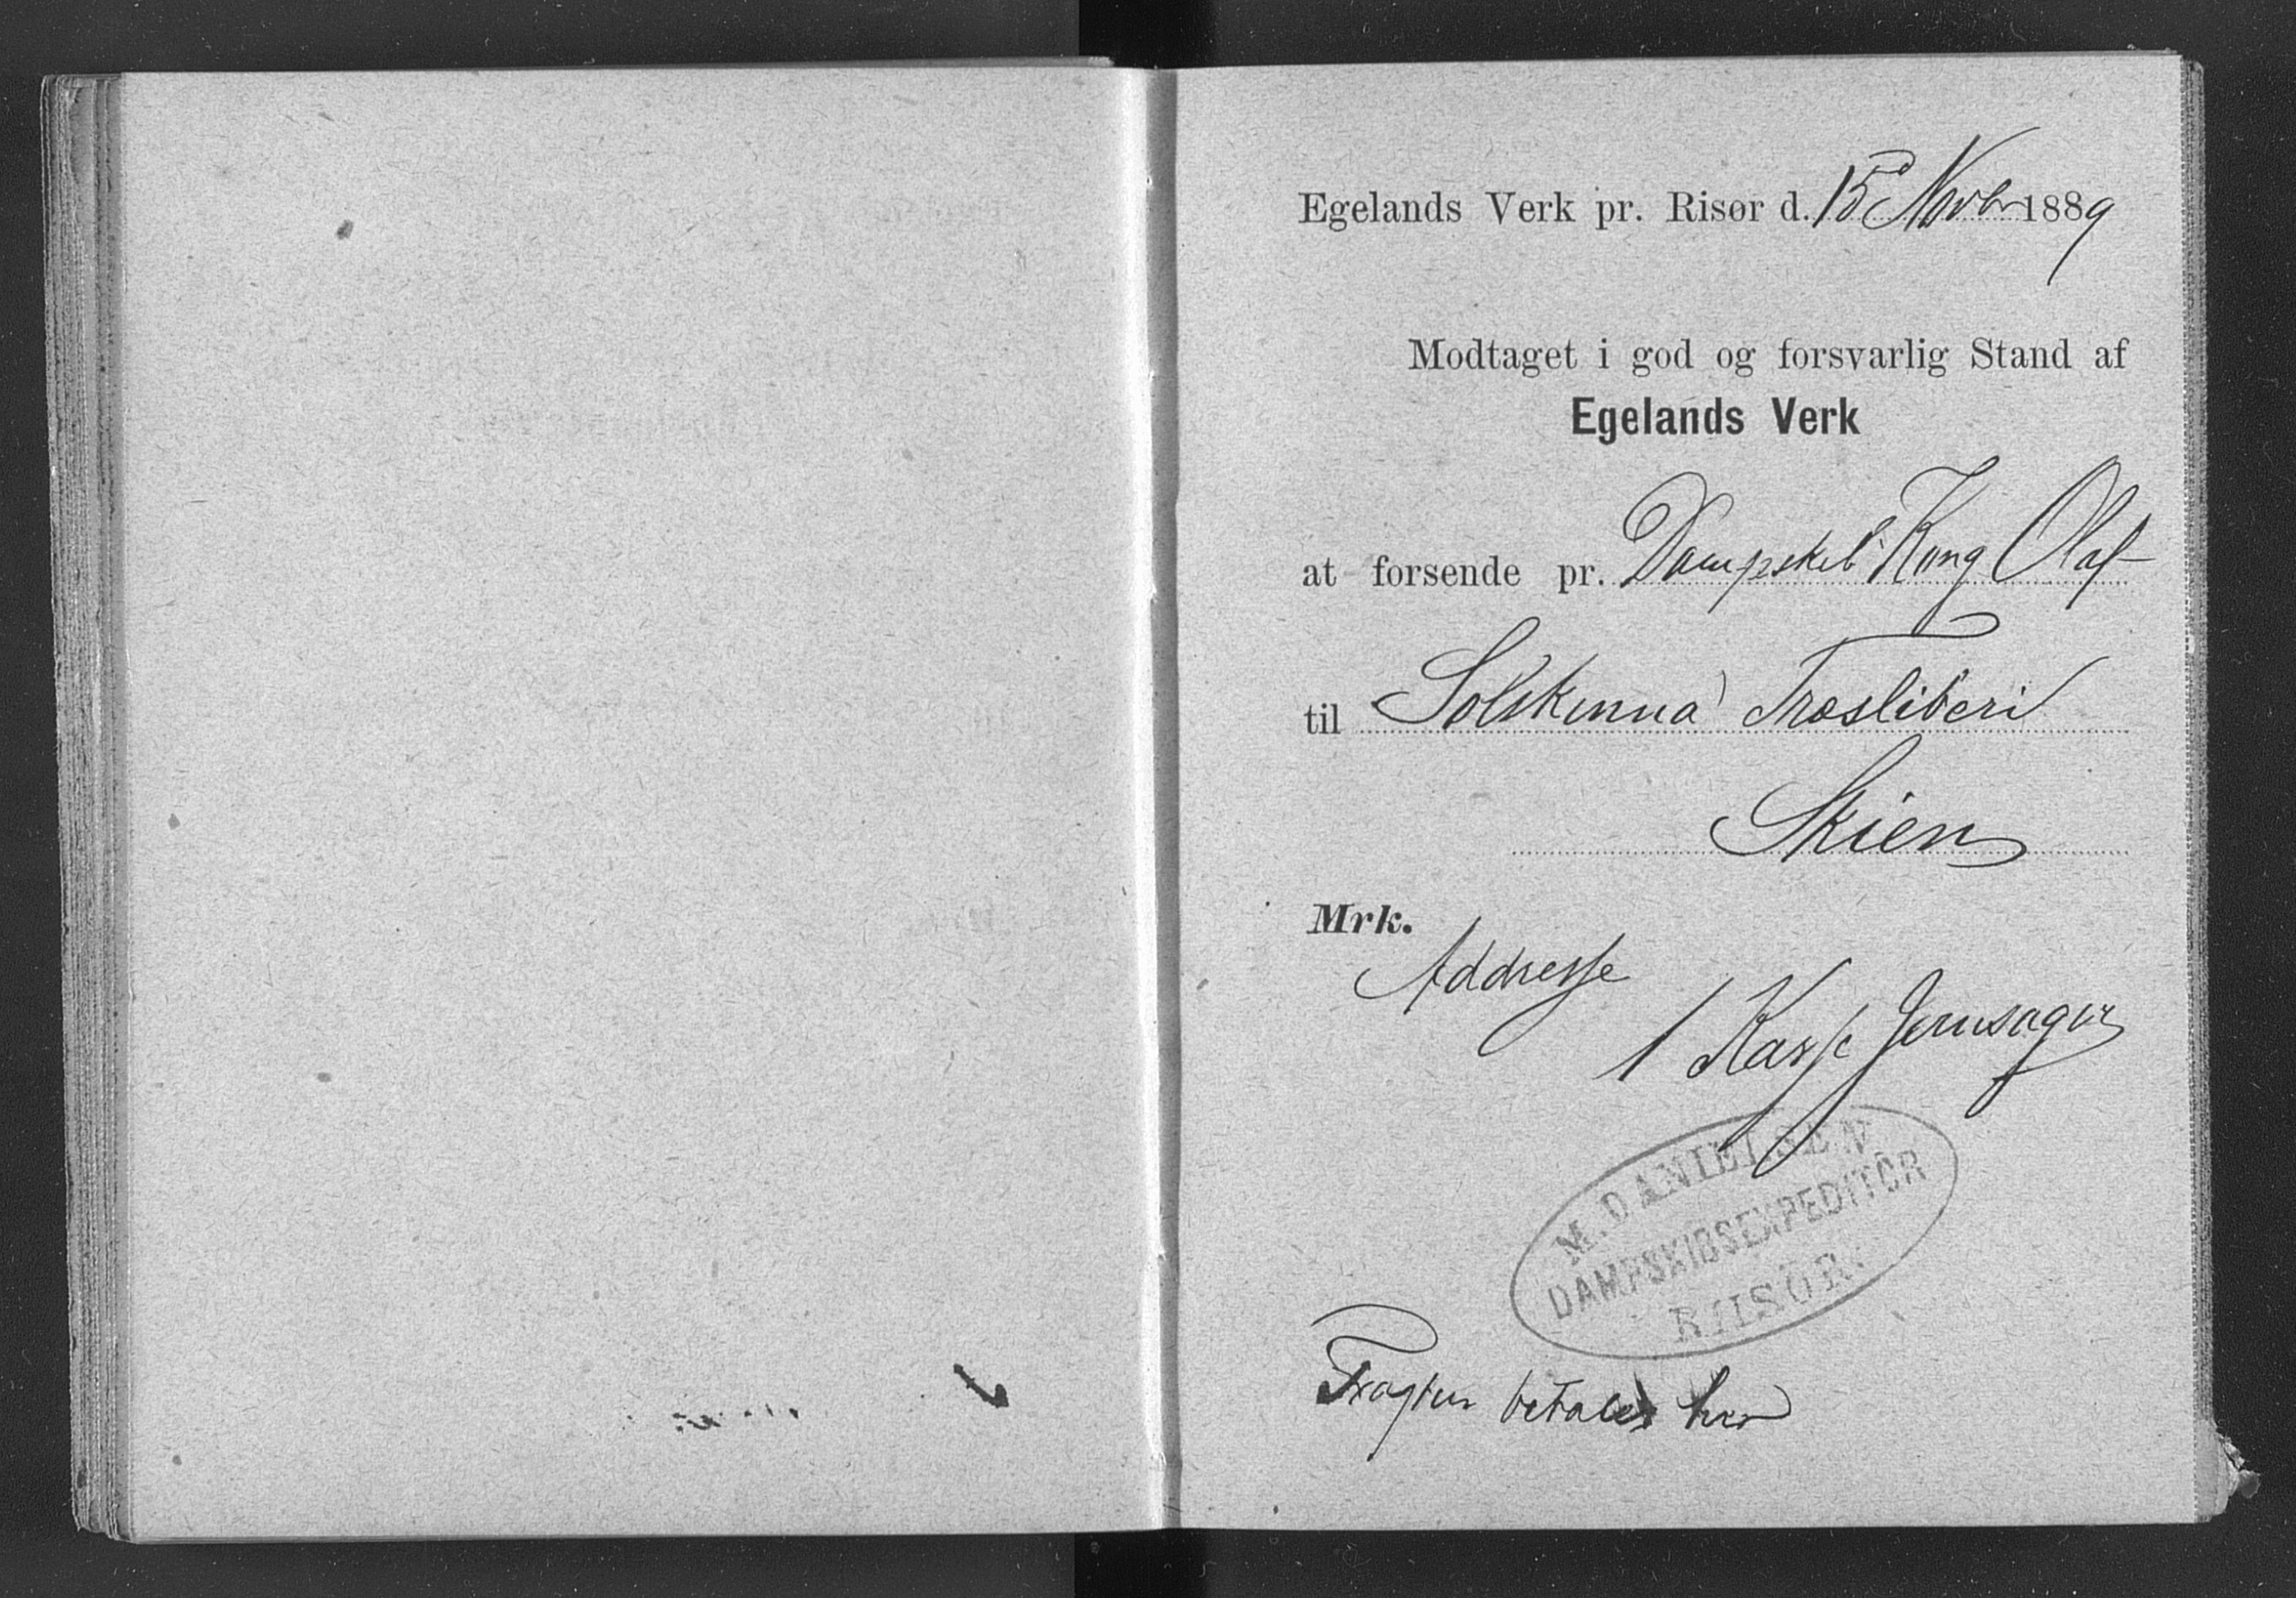 Egelands Verk pr. Risør d. 15 Novbr 1889
Modtaget i god og forsvarlig Stand af
Egelands Verk
at forsende pr. Dampskib Kong Olaf
til Træsliberi
Skien
Mrk.
Addresse
1 Kasse Jernsager
M. DANIELSEN
DAMPSKIBSEXPEDITØR
RIISØR.
Fragten betales her